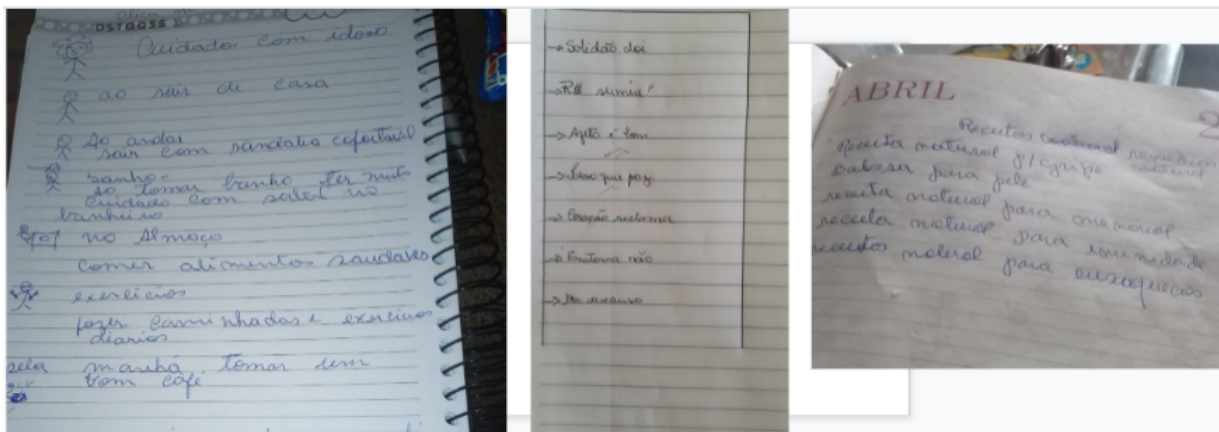 DSTQQSS
Cuidados com idoso
ao sair de casa
Ao andar
sair com sandalia cofortavil
banho-
ao tomar banho ter muito
cuidado com no
banheiro
no Almoço
comer alimentos saudaves
exercicios
fazer caminhadas e exercicios
diarios
pela manhã tomar um
bom café
→ Solidão doi
→ sumiu!
→ é bom
→ que paz
→ Coração reclama
→ não
→ descanso
ABRIL
2
Receitas natural
Receita natural p/ gripe natural
babosa para pele
receita natural para
receita natural para imunidade
receitas natural para